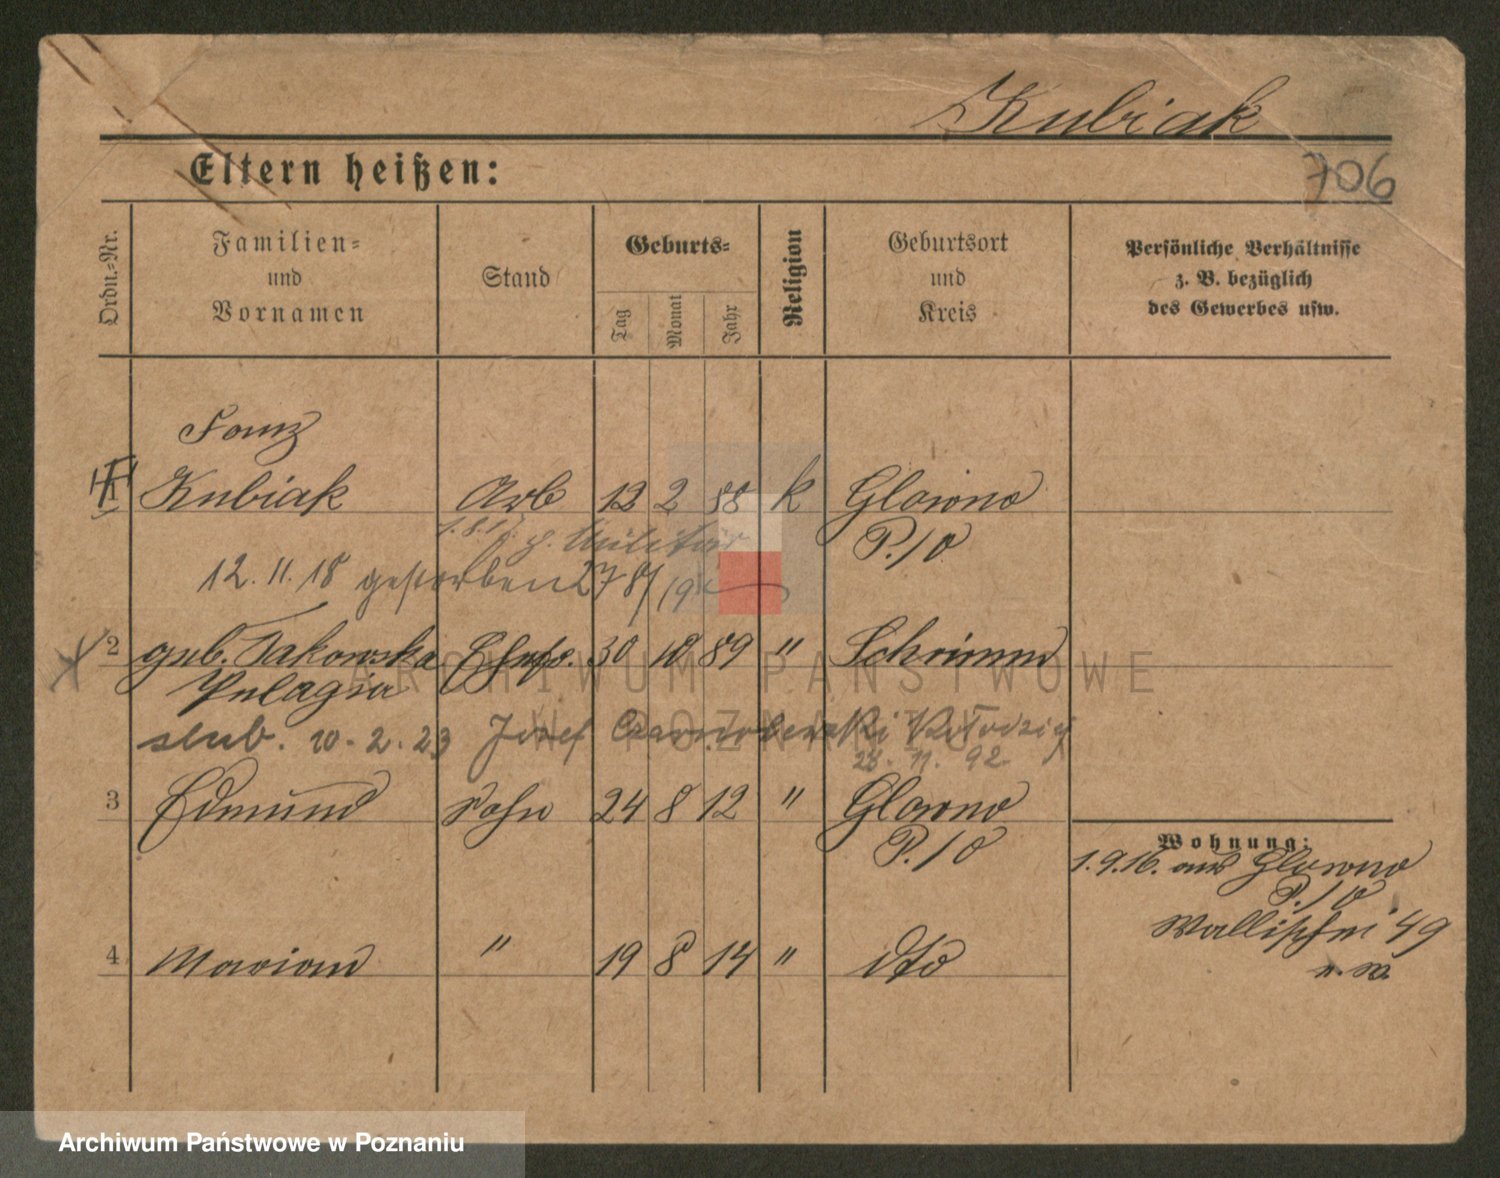 Kubiak
706
Eltern heißen:
Ordn.-Nr.
Familien- und Vornamen
Stand
Geburts-
Tag
Monat
Jahr
Religion
Geburtsort und Kreis
Persönliche Verhältnisse z. B. bezüglich des Gewerbes usw.
Franz
1 Kubiak Arb 12 2 88 k Glowno
P./O
z. Militär
12.11.18 gestorben
2 geb. Ehefr. 30 10 89 " Schrimm
Pelagia
slub. 10.2.23 Jozef
28.11.92
3 Edmund Sohn 24 8 12 " Glowno
P./O
Wohnung:
1.9.16. aus Glowno
P./O
Wallischei 49
4 Marian " 19 8 14 " dto
ARCHIWUM PAŃSTWOWE
W POZNANIU
Archiwum Państwowe w Poznaniu